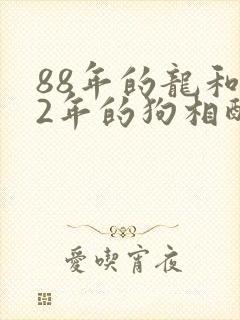 88年的龍和
2年的狗相配
愛喫宵夜